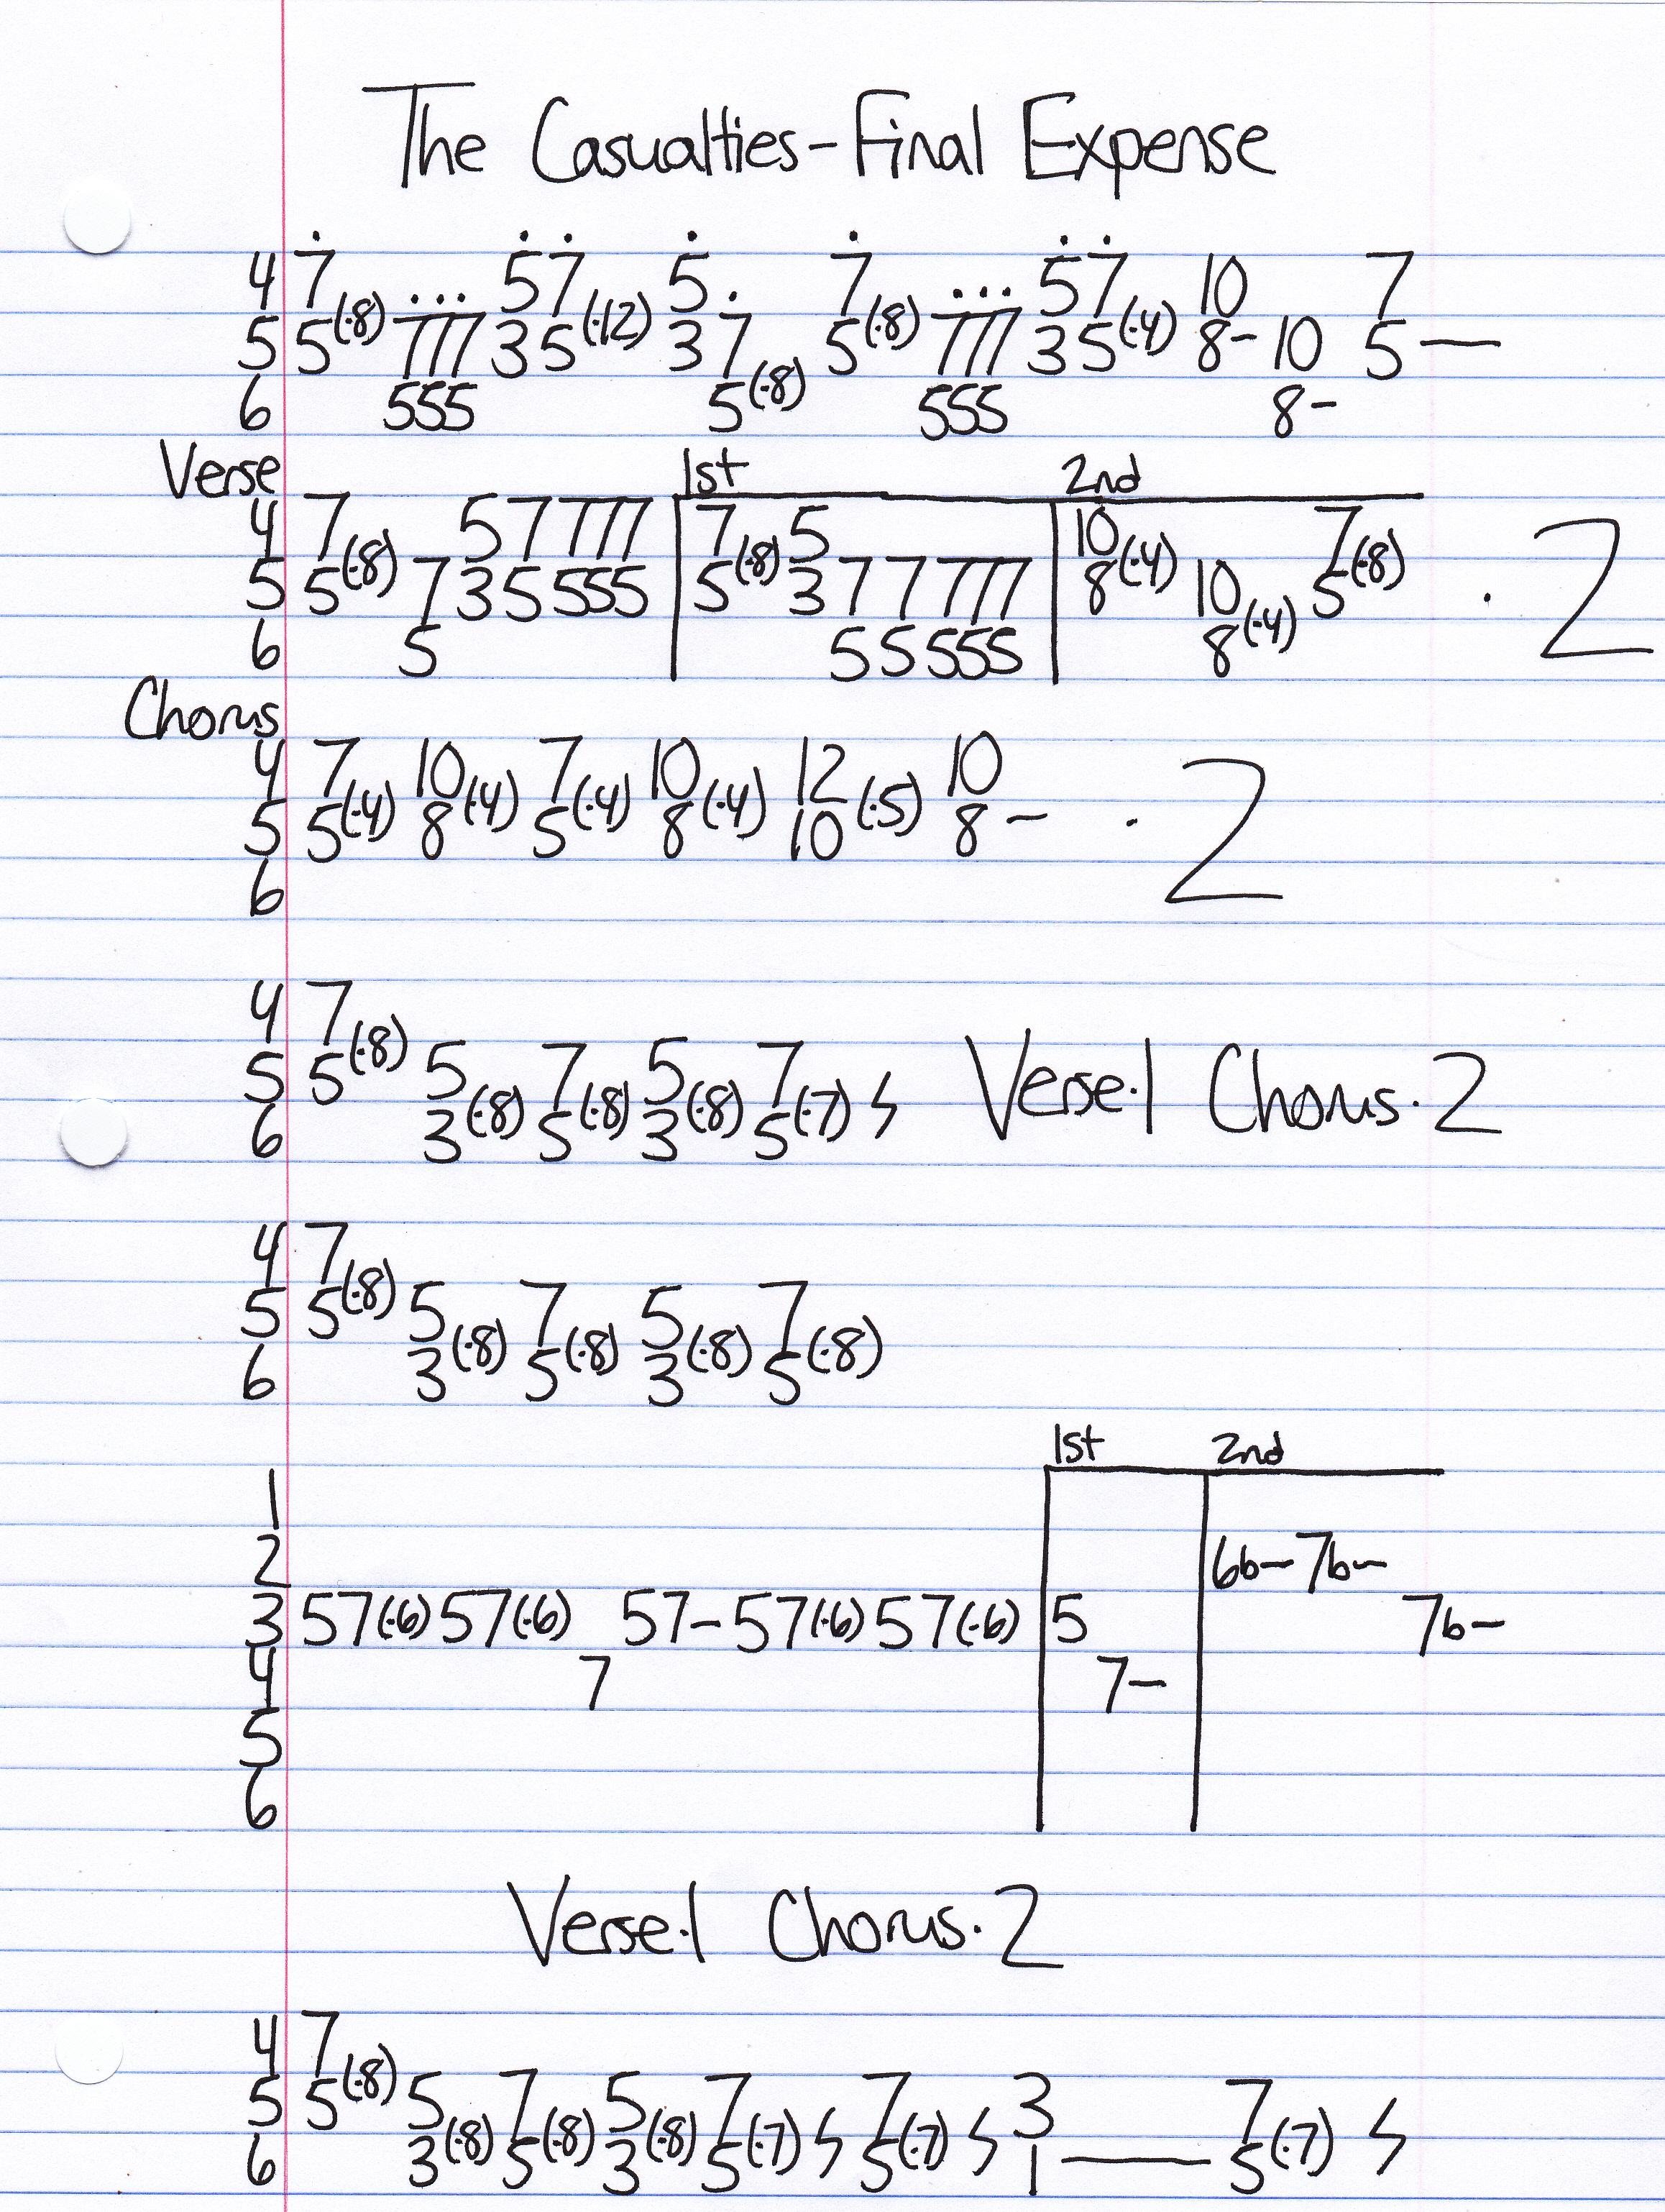 The Casualties-Final Expense
4 7 57 5 7 57 10 7
5 5(·8) 777 35(·12) 3 7 5(·8) 777 35(·4) 8- 10 5—
6 555 5(·8) 555 8-
Verse 1st 2nd
4 7 57777 7 5 10 7
5 5(·8) 7 35555 5(·8) 3 7 7 777 8(·4) 10 5(·8) · 2
6 5 5 5 555 8(·4)
Chorus
4 7 10 7 10 12 10
5 5(·4) 8(·4) 5(·4) 8(·4) 10(·5) 8- · 2
6
4 7
5 5(·8) 5 7 5 7 Verse·1 Chorus·2
6 3(·8) 5(·8) 3(·8) 5(·7) 𝄽
4 7
5 5(·8) 5 7 5 7
6 3(·8) 5(·8) 3(·8) 5(·8)
1st 2nd
1
2 6b- 7b-
3 57(·6) 57(·6) 57- 57(·6) 57(·6) 5 7b-
4 7 7-
5
6
Verse·1 Chorus·2
4 7
5 5(·8) 5 7 5 7 7 3 7
6 3(·8) 5(·8) 3(·8) 5(·7) 𝄽 5(·7) 𝄽 1 — 5(·7) 𝄽